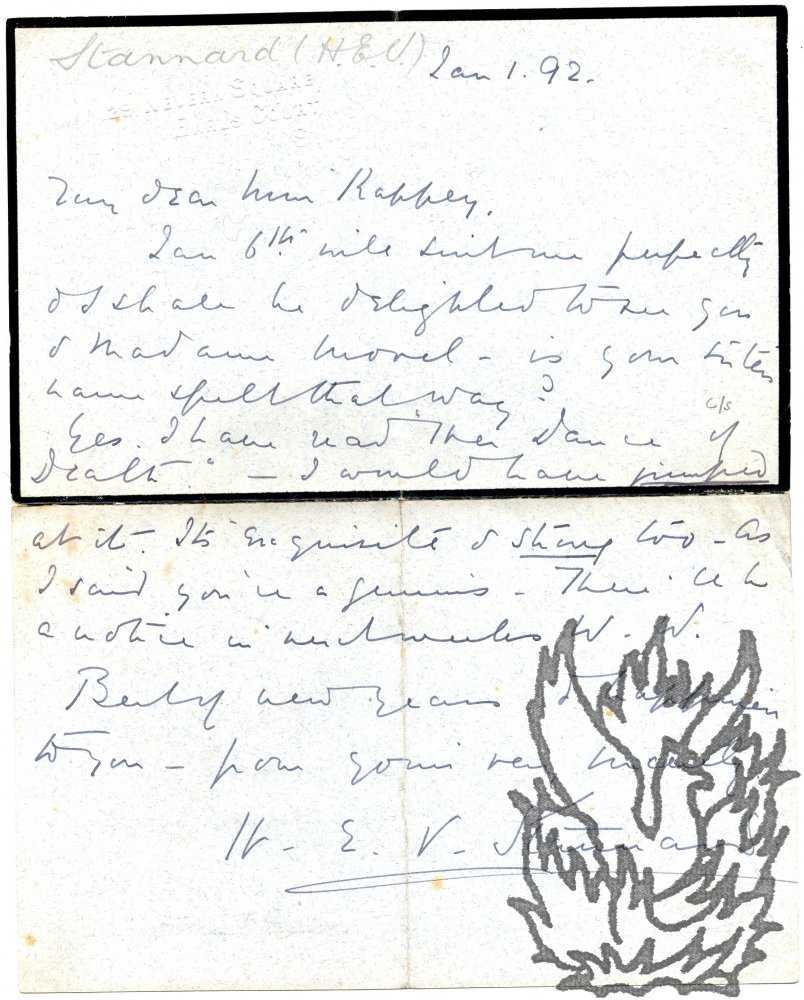 Stannard (H.E.V.)
Jan 1. 92.
SQUARE
EARL'S COURT
S.
My dear Miss Kappey,
Jan 6th will suit me perfectly
& I shall be delighted to see you
& Madame Morel - is your sister's
name spelt that way?
c/s
Yes. I have read "The Dance of
Death" - I would have jumped
at it. Its exquisite & strong too - As
I said you're a genius - There'll be
a notice in next weeks W. W.
Best of new years & happiness
to you - from yours very sincerely
H - E. V - Stannard